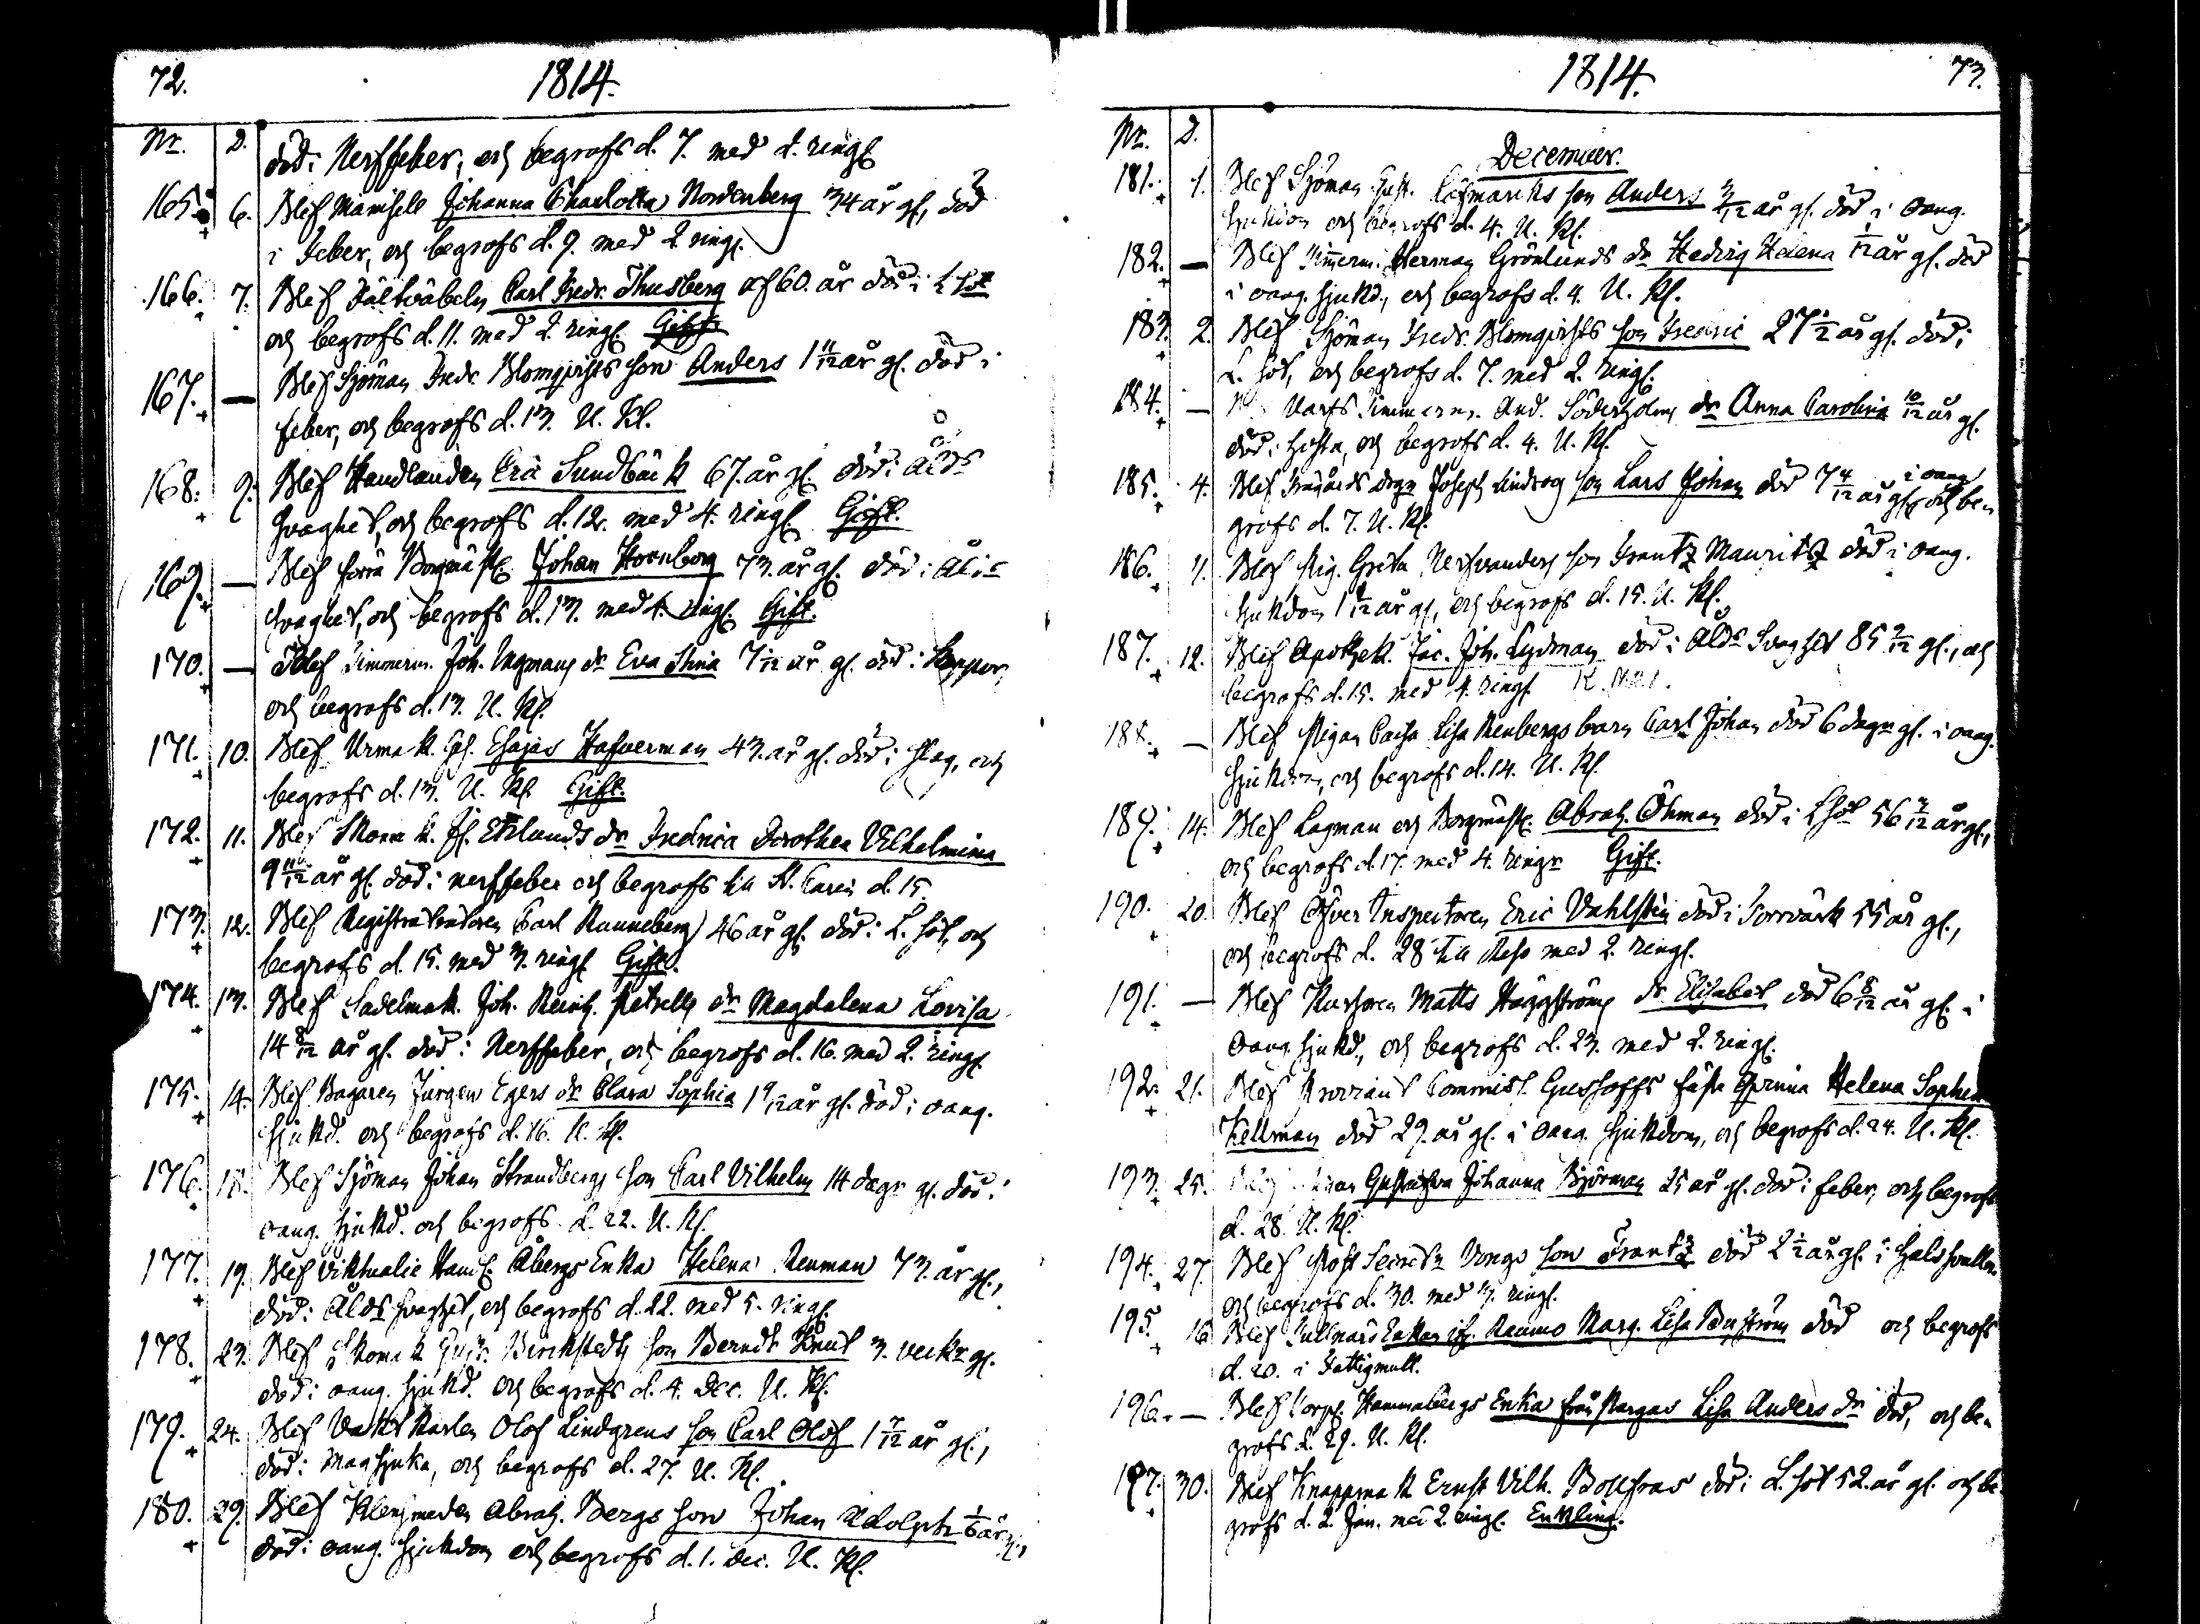 72.
1814.
Nr. D.
död i Nerffeber, och begrofs d. 7. med 2. ringr
165. 6. Blef Mamsell Johanna Charlotta Nordenberg 34 år gl, död
i Feber, och begrofs d. 9. med 2 ringr.
166. 7. Blef Fältväbeln Carl Fredr. Thusberg af 60. år död i L. Sot
och begrofs d. 11. med 2. ringr. Gift.
167. — Blef Sjöman Fredr. Blomqvists son Anders 1 11/12 år gl. död i
feber, och begrofs d. 13. U. Kl.
168. 9. Blef Handlanden Eric Sundbäck 67. år gl. död i Ålds
svaghet, och begrofs d. 12. med 4. ringr. Gift.
169. — Blef förra Borgmäst. Johan Hornborg 73. år gl. död i Ålds
svaghet, och begrofs d. 13. med 4. ringr. Gift.
170. — Blef Timmerm. Joh. Ingmans dr Eva Stina 7/12 år gl. död i Koppor,
och begrofs d. 13. U. Kl.
171. 10. Blef Urmak. Ges. Esajas Hafverman 43. år gl. död i slag, och
begrofs d. 13. U. Kl. Gift.
172. 11. Blef Skomak. Ekelunds dr Fredrica Dorothea Vilhelmina
9 10/12 år gl. död i nerffeber och begrofs till St. Carin d. 15.
173. 12. Blef Registratoren Carl Runneberg 46 år gl. död i L. sot, och
begrofs d. 15. med 3. ringr Gift.
174. 13. Blef Sadelmak. Joh. Reinh. Petrells dr Magdalena Lovisa
14 8/12 år gl. död i Nerffeber, och begrofs d. 16. med 2. ringr.
175. 14. Blef Bagaren Jürgen Egers dr Clara Sophia 1 9/12 år gl. död i oang.
sjukd. och begrofs d. 16. U. Kl.
176. 18. Blef Sjöman Johan Strandbergs son Carl Vilhelm 14 dagr gl. död i
oang. sjukd. och begrofs d. 22. U. Kl.
177. 19. Blef Viktualie Handl. Åbergs Enka Helena Renman 73. år gl.,
död i Ålds svaghet, och begrofs d. 22. med 5. ringr.
178. 23. Blef Skomak. Gust. Berckstedts son Berndt Knut 3. veckr gl.
död i oang. sjukd. och begrofs d. 4. Dec. U. Kl.
179. 24. Blef Vaktkarlen Olof Lindgrens son Carl Olof 1 7/12 år gl.,
död i Magsjuka, och begrofs d. 27. U. Kl.
180. 29. Blef Klensmeden Abrah. Bergs son Johan Adolph 1/6 år gl.,
död i oang. sjukdom och begrofs d. 1. Dec. U. Kl.
1814.
73.
Nr. D.
December.
181. 1. Blef Sjöman Gust. Löfmarcks son Anders 3/12 år gl. död i oang.
sjukdom och begrofs d. 4. U. Kl.
182. — Blef Timerm. Herman Grönlunds dr Hedvig Helena 1/12 år gl. död
i oang. sjukd., och begrofs d. 4. U. Kl.
183. 2. Blef Sjöman Fredr. Blomqvists son Fredric 27 1/2 år gl. död i
L. sot, och begrofs d. 7. med 2. ringr.
184. — Varfs Timmerm. And. Söderholms dr Anna Carolina 10/12 år gl.
död i hosta, och begrofs d. 4. U. Kl.
185. 4. Blef Joseph Lindroos son Lars Johan död 7 4/12 år gl. i oang. och be-
grofs d. 7. U. Kl.
186. 7. Blef Pig. Greta Nervanders son Frantz Mauritz död i oang.
sjukdom 1 8/12 år gl, och begrofs d. 15. U. Kl.
187. 12. Blef Apothek. Jac. Joh. Lydman död i Ålds Svaghet 85 9/12 gl., och
begrofs d. 15. med 4. ringr.
188. — Blef Pigan Caisa Lisa Renbergs barn Carl Johan död 6 dagr gl. i oang.
sjukdom, och begrofs d. 14. U. Kl.
189. 14. Blef Lagman och Borgmäst. Abrah. Öhman död i L Sot 56 3/12 år gl.,
och begrofs d. 17. med 4. ringr Gift.
190. 20. Blef Öfver Inspectoren Eric Vahlstén död i Torrvärk 55 år gl.,
och begrofs d. 28 till Reso med 2. ringr.
191. — Blef Kursoren Matts Häggströms dr Elisabet död 6 8/12 år gl. i
oang. sjukd., och begrofs d. 23. med 2. ringr.
192. 21. Blef Proviant Commiss. Gusshoffs fästeqvinna Helena Sophia
Kellman död 29. år gl. i oang. sjukdom, och begrofs d. 24. U. Kl.
193. 25. Gustafva Johanna Björman 25 år gl. död i feber, och begrofs
d. 28. U. Kl.
194. 27. Blef Post Secret. Bonge son Frantz död 2 1/2 år gl. i halssvullen.
och begrofs d. 30. med 3. ringr.
195. 16. Blef Enkan ifr. Raumo Marg. Lisa Boström död och begrofs
d. 20. i Fattigmull.
196. — Blef Corpr. Hammarbergs Enka från Pargas Lisa Anders dr död, och be-
grofs d. 29. U. Kl.
197. 30. Blef Knappmak. Ernst Vilh. Bollfras död i L. sot 52. år gl. och be-
grofs d. 2. Jan. med 2. ringr. Enkling.